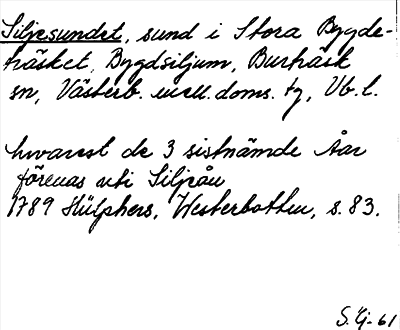 Siljesundet, sund i Stora Bygde-
träsket, Bygdsiljum, Burträsk
sn, Västerb. mell. doms. tg, Vb. l.
hvarest de 3 sistnämde Åar
förenas uti Siljeån
1789 Hülphers, Westerbotten, s. 83.
S. Gj-61